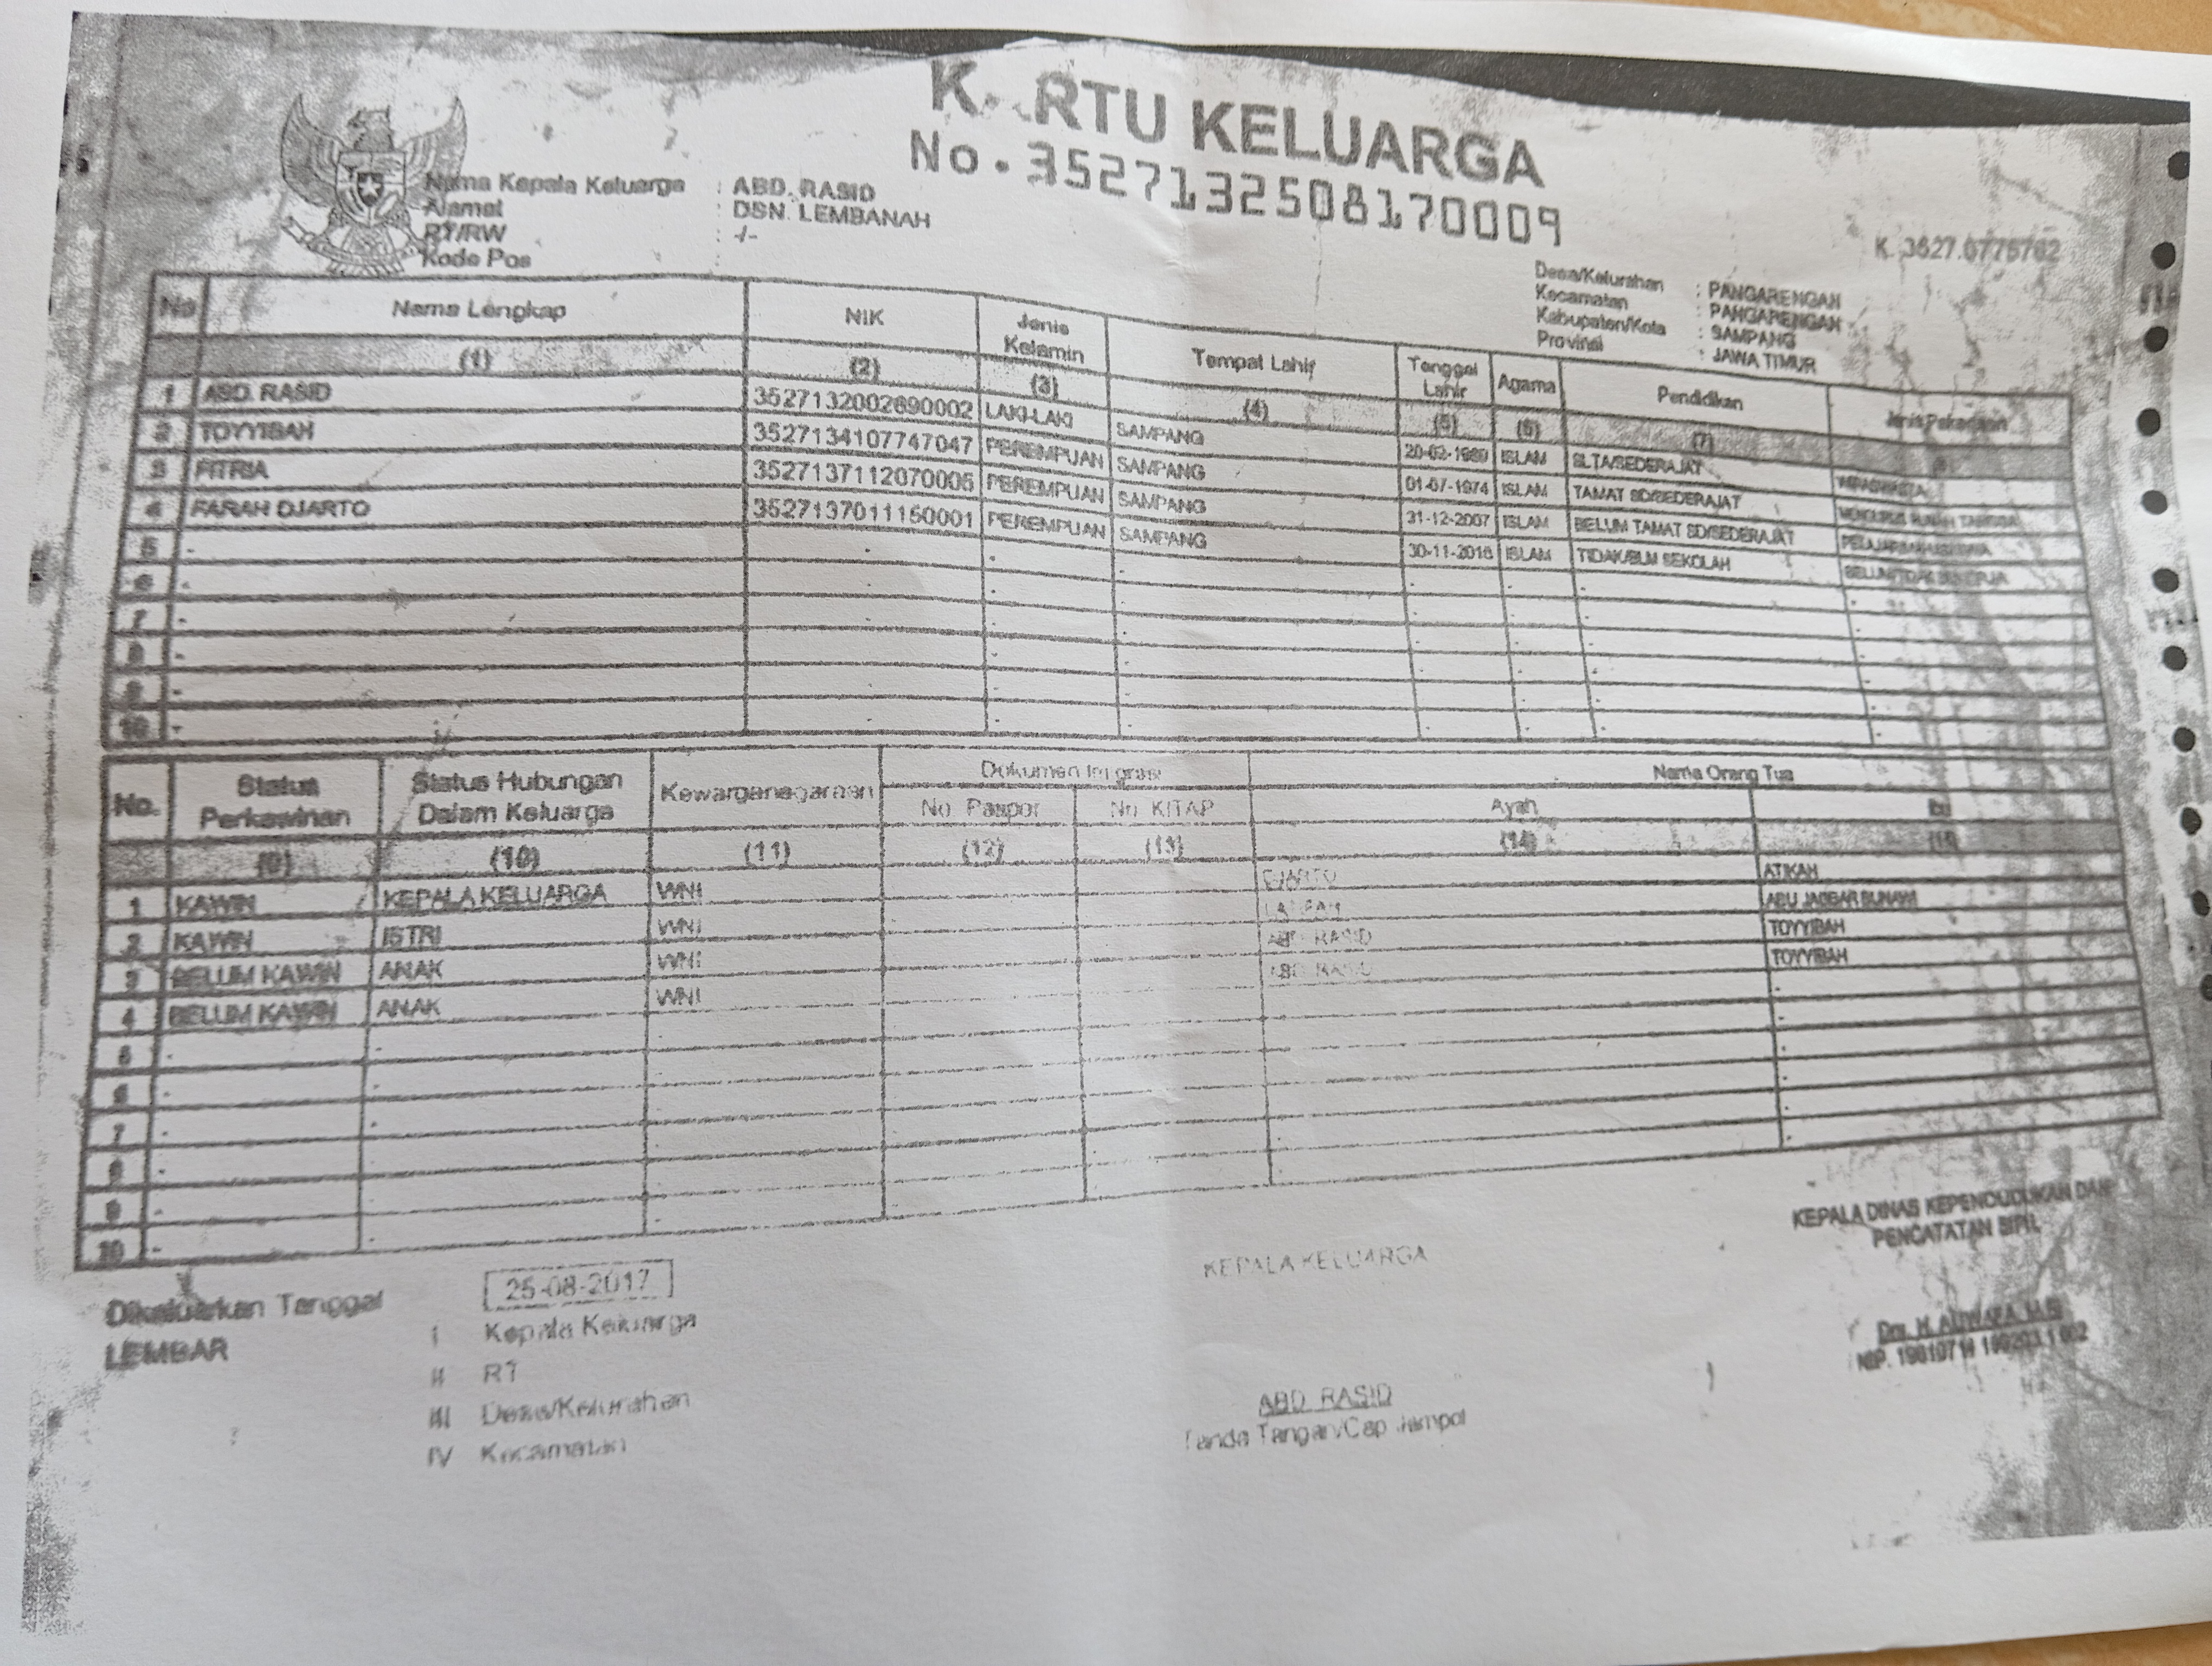 K RTU KELUARGA
No. 3527132508170009
Nama Kepala Keluarga : ABD. RASID
Alamat : DSN. LEMBANAH
RT/RW : -/-
Kode Pos :
Desa/Kelurahan : PANGARENGAN
Kecamatan : PANGARENGAN
Kabupaten/Kota : SAMPANG
Provinsi : JAWA TIMUR
No Nama Lengkap NIK Jenis Kelamin Tempat Lahir Tanggal Lahir Agama Pendidikan Jenis Pekerjaan
(1) (2) (3) (4) (5) (6) (7)
1 ABD. RASID LAKI-LAKI SAMPANG ISLAM SLTA/SEDERAJAT
2 TOYYIBAH 3527134107747047 PEREMPUAN SAMPANG 01-07-1974 ISLAM TAMAT SD/SEDERAJAT
3 FITRIA PEREMPUAN SAMPANG 31-12-2007 ISLAM BELUM TAMAT SD/SEDERAJAT
4 FARAH DJARTO PEREMPUAN SAMPANG ISLAM TIDAK/BLM SEKOLAH
5 -
6 -
7 -
8 -
9 -
10 -
No. Status Perkawinan Status Hubungan Dalam Keluarga Kewarganegaraan Dokumen Imigrasi Nama Orang Tua
No. Paspor No. KITAP Ayah Ibu
(9) (10) (11) (12) (13) (14) (15)
1 KAWIN KEPALA KELUARGA WNI ATIKAH
2 KAWIN ISTRI WNI
3 BELUM KAWIN ANAK WNI ABD. RASID TOYYIBAH
4 BELUM KAWIN ANAK WNI ABD. RASID TOYYIBAH
5 -
6 -
7 -
8 -
9 -
10 -
Dikeluarkan Tanggal 25-08-2017
LEMBAR I Kepala Keluarga
II RT
III Desa/Kelurahan
IV Kecamatan
KEPALA KELUARGA
ABD. RASID
Tanda Tangan/Cap Jempol
KEPALA DINAS KEPENDUDUKAN DAN
PENCATATAN SIPIL